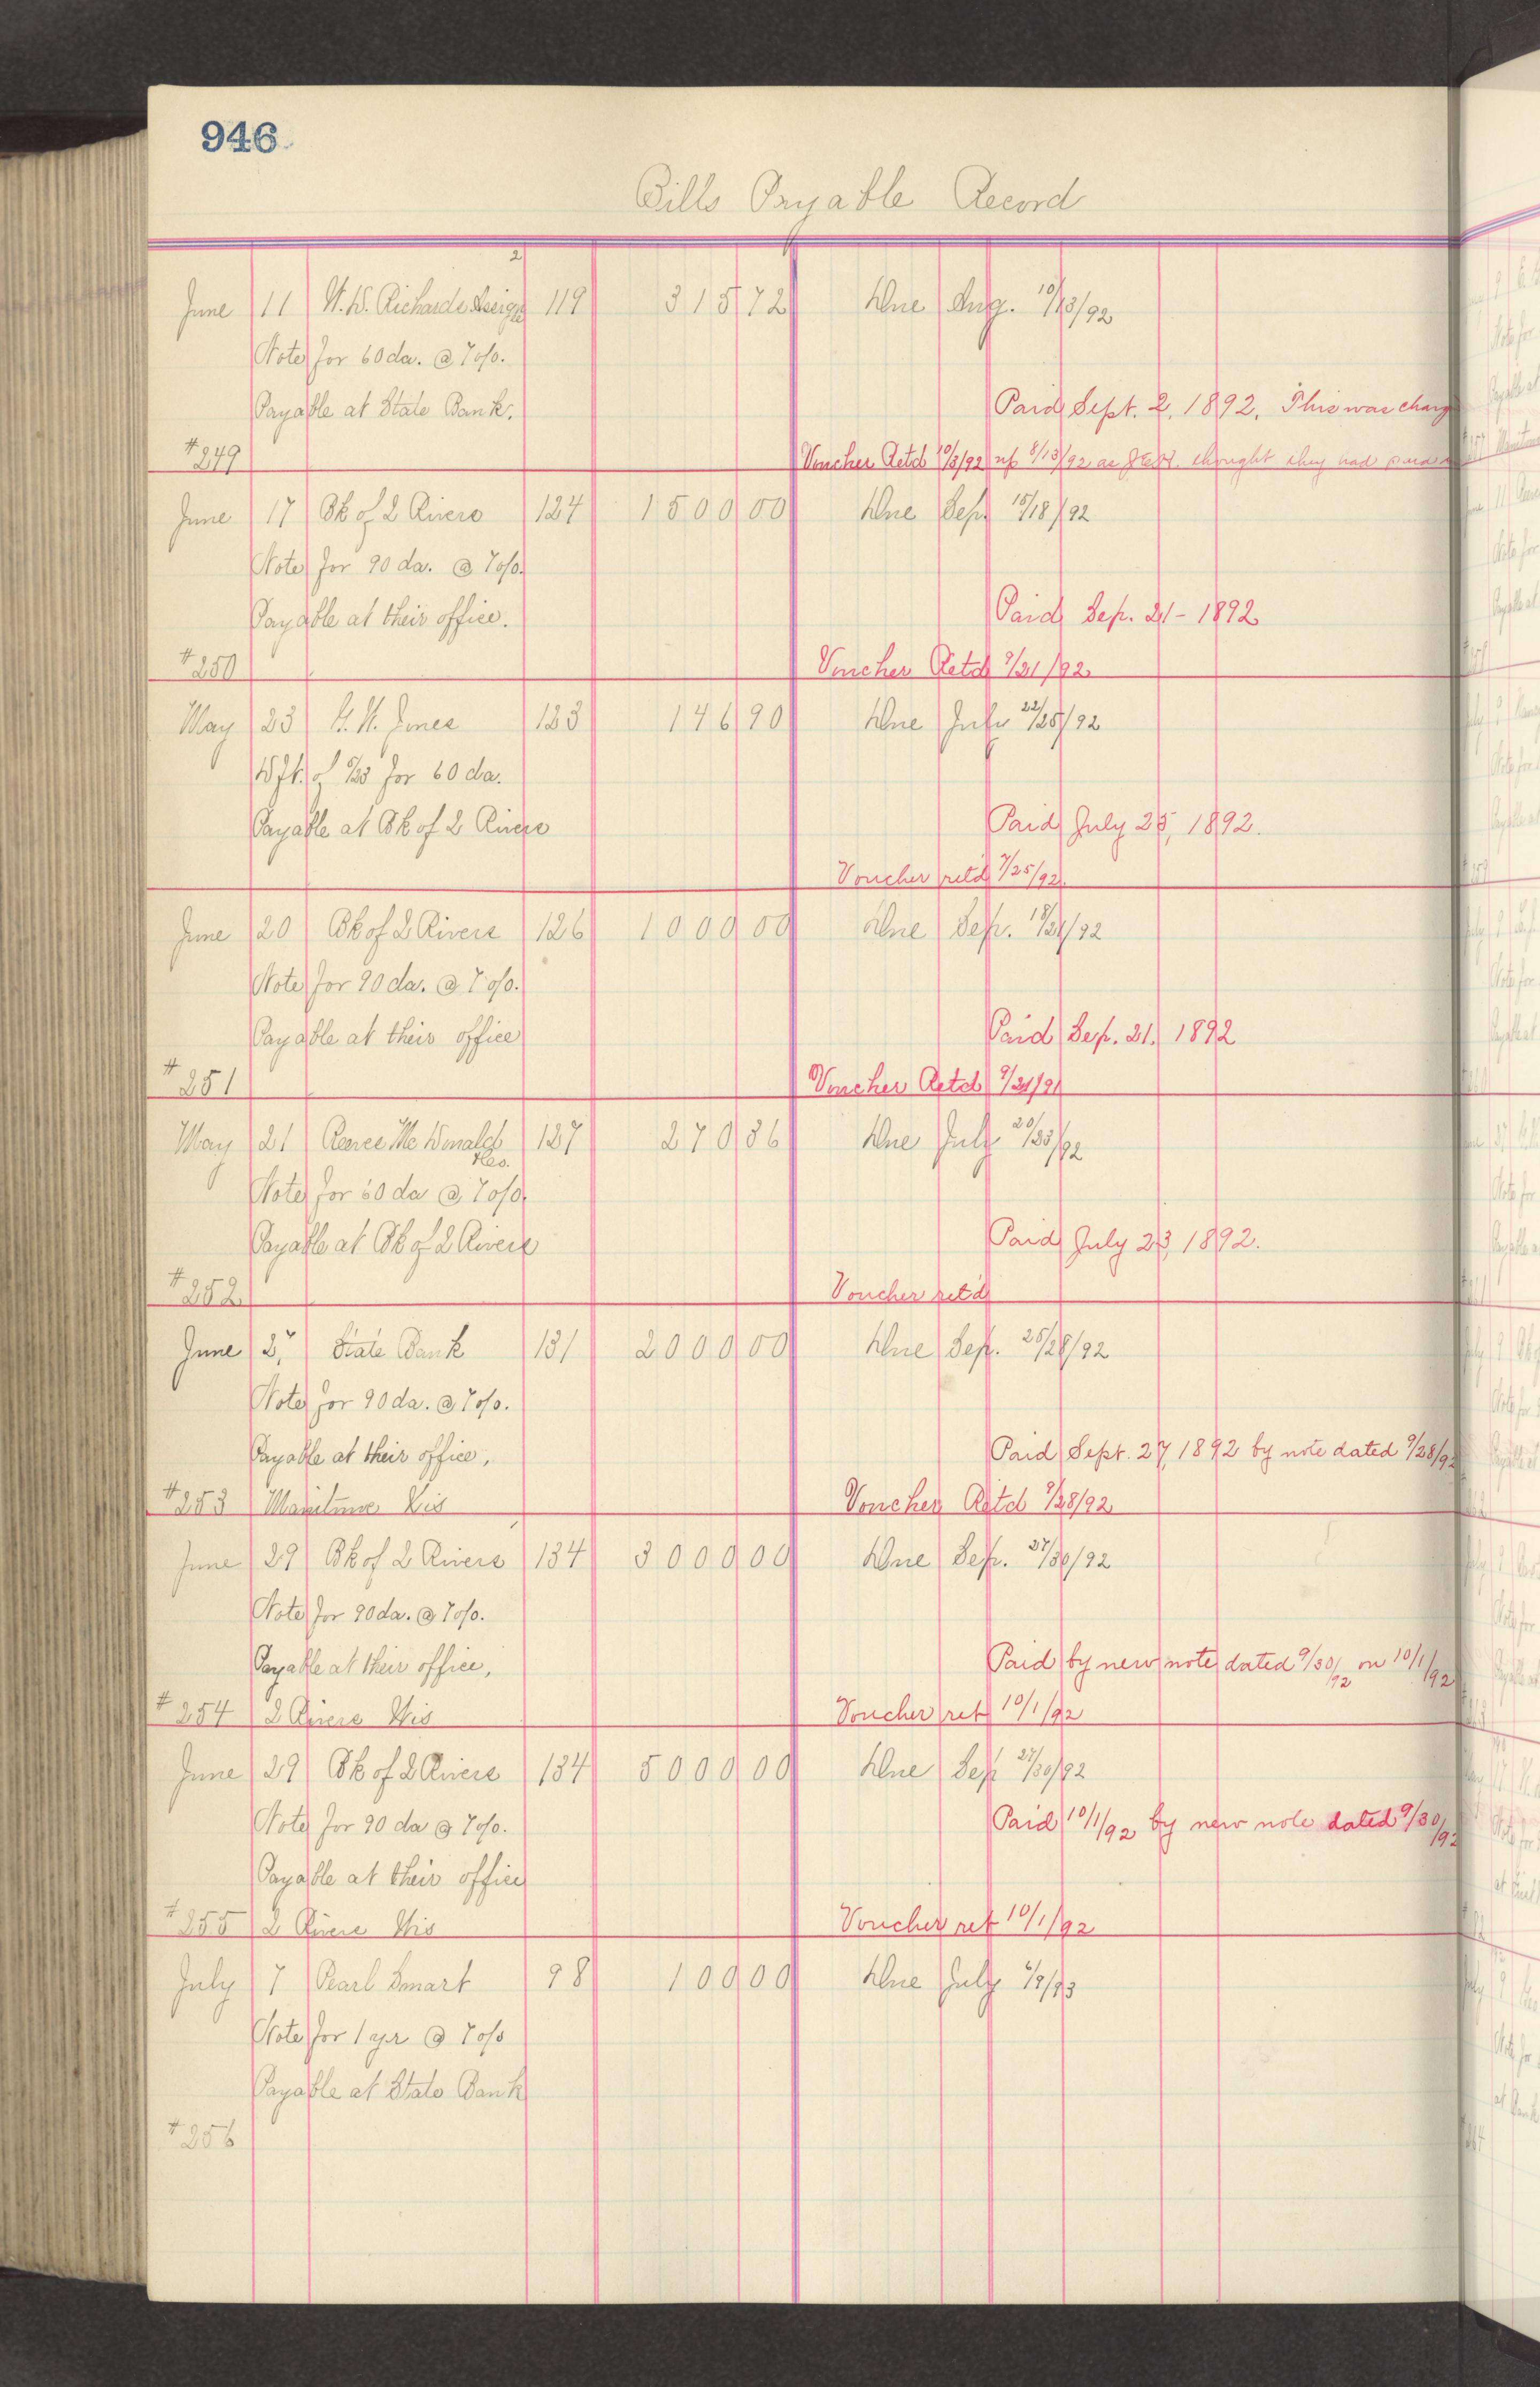 946
Bills Payable Record
2
June 11 W. D. Richards Assigee 119 315 72 Due Aug. 10/13/92
Note for 60 da. @ 7 o/o.
Payable at State Bank. Paid Sept. 2, 1892. This was charg
#249 Voucher Retd 10/3/92 up 8/13/92 as thought they had paid
June 17 Bk of 2 Rivers 124 1500 00 Due Sep. 15/18/92
Note for 90 da. @ 7 o/o.
Payable at their office. Paid Sep. 21 - 1892
#250 Voucher Retd 9/21/92
May 23 Jones 123 146 90 Due July 22/25/92
Dft. of 5/23 for 60 da.
Payable at Bk of 2 Rivers Paid July 25, 1892.
Voucher ret'd 7/25/92.
June 20 Bk of 2 Rivers 126 1000 00 Due Sep. 18/21/92
Note for 90 da. @ 7 o/o.
Payable at their office Paid Sep. 21. 1892
#251 Voucher Retd 9/21/91
May 21 Reeree McDonald 127 270 36 Due July 20/23/92
Note for 60 da @ 7 o/o.
Payable at Bk of 2 Rivers Paid July 23, 1892.
#252 Voucher ret'd
June 27 State Bank 131 2000 00 Due Sep. 25/28/92
Note for 90 da. @ 7 o/o.
Payable at their office, Paid Sept. 27, 1892 by note dated 9/28/92
#253 Manitowoc Wis Voucher Retd 9/28/92
June 29 Bk of 2 Rivers 134 3000 00 Due Sep. 27/30/92
Note for 90 da. @ 7 o/o.
Payable at their office, Paid by new note dated 9/30/92 on 10/1/92
#254 2 Rivers Wis Voucher ret 10/1/92
June 29 Bk of 2 Rivers 134 5000 00 Due Sep 27/30/92
Note for 90 da @ 7 o/o. Paid 10/1/92 by new note dated 9/30/92
Payable at their office
#255 2 Rivers Wis Voucher ret 10/1/92
July 7 Pearl Smart 98 100 00 Due July 6/9/93
Note for 1 yr @ 7 o/o
Payable at State Bank
#256